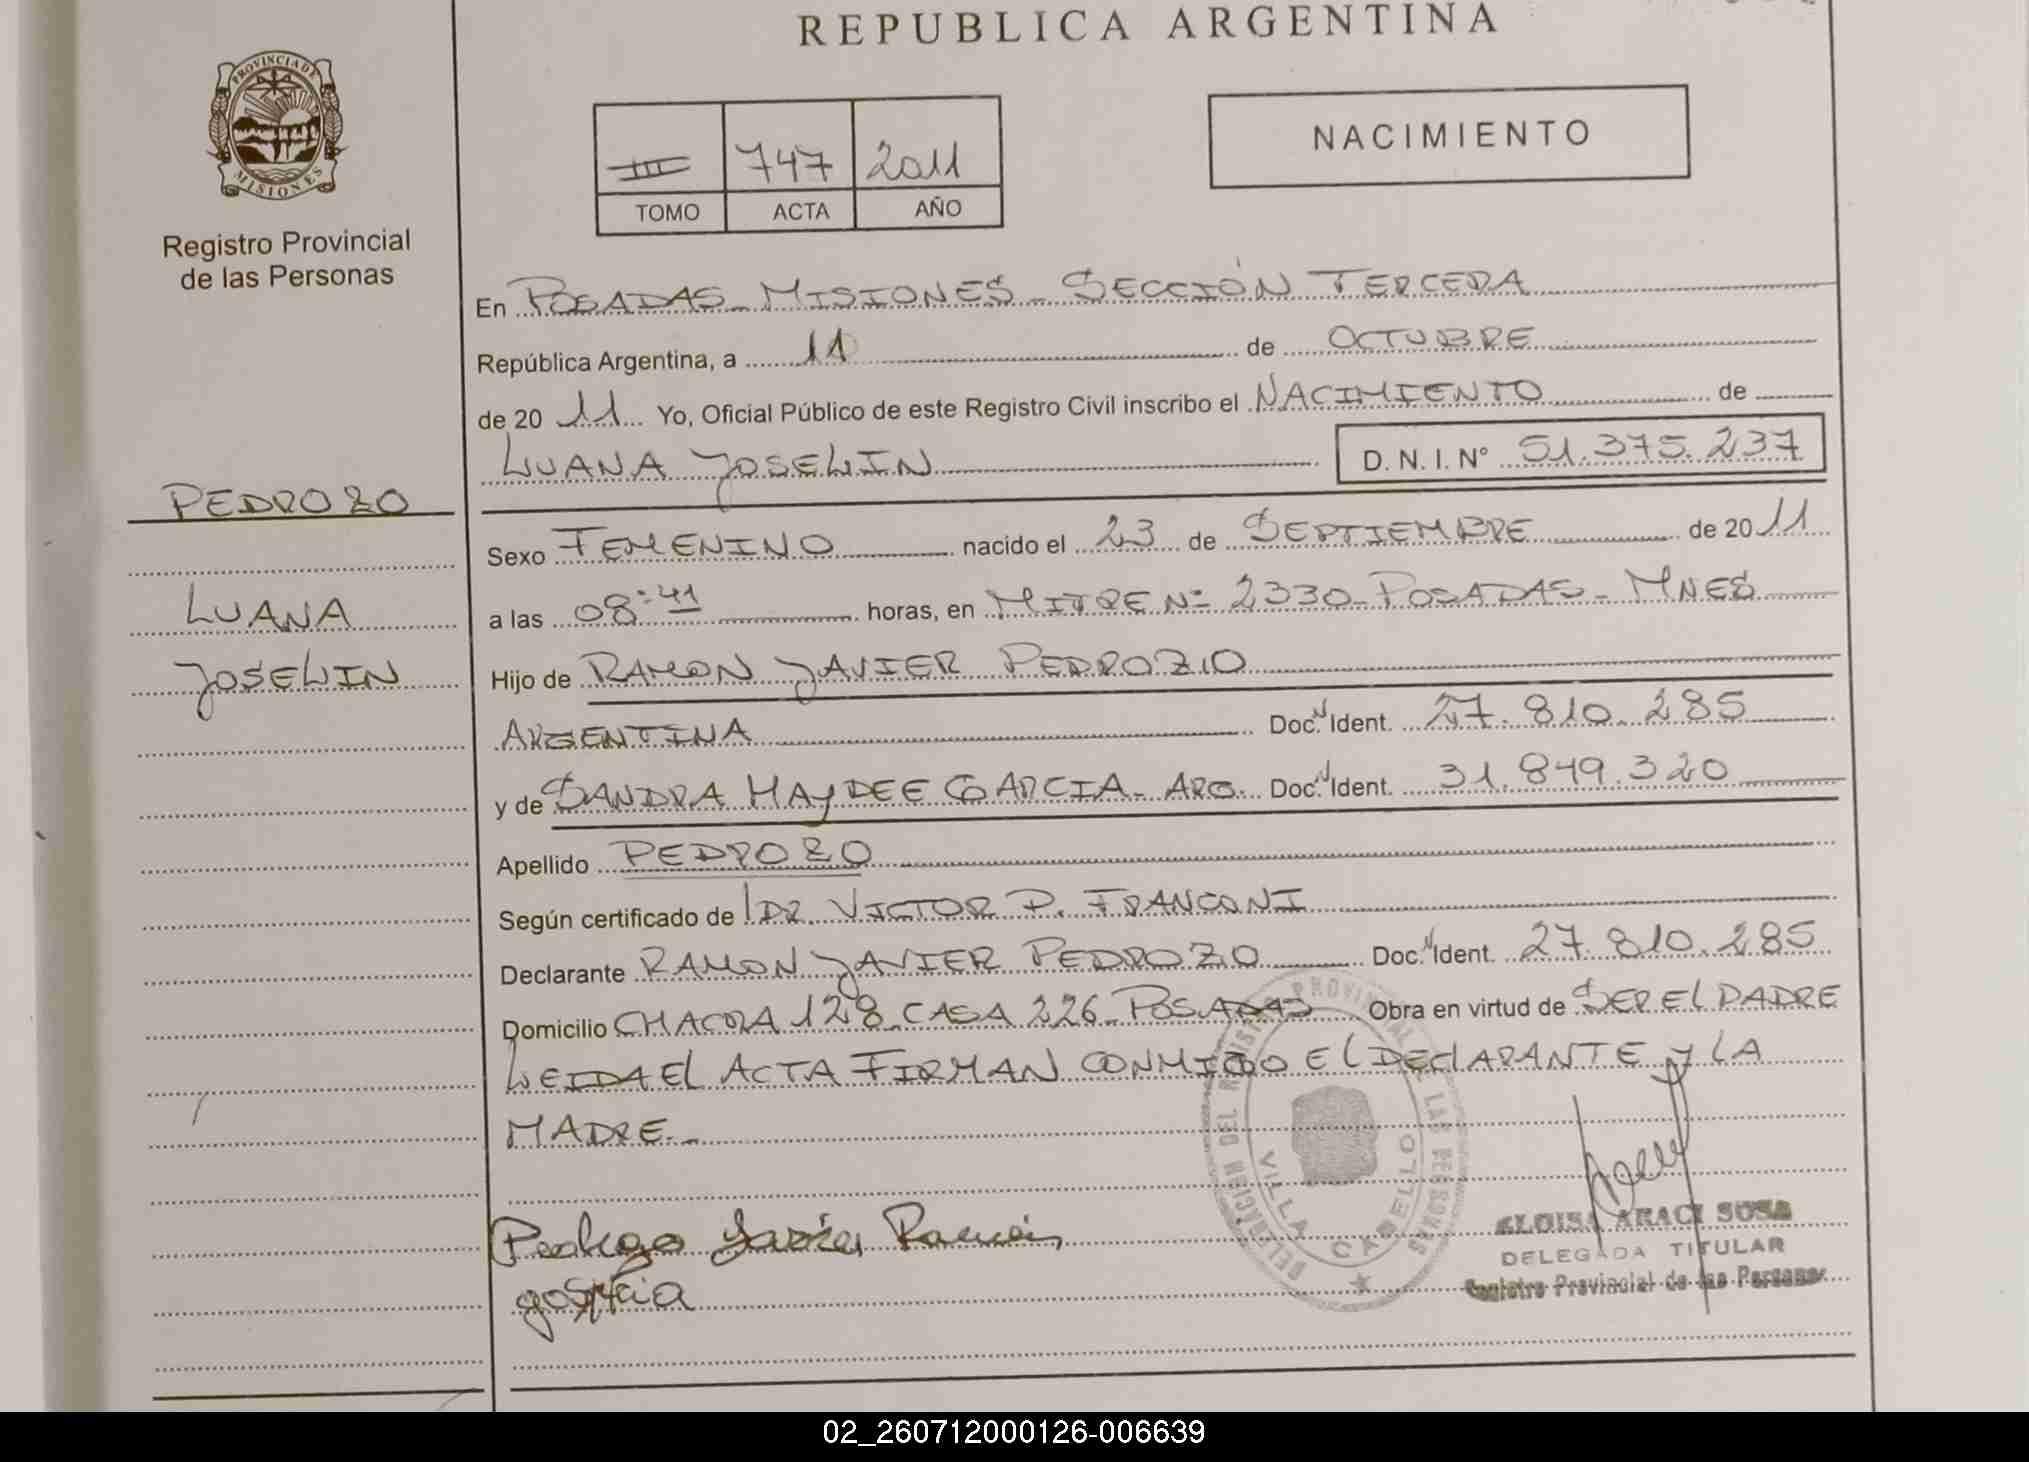 REPUBLICA ARGENTINA
PROVINCIA DE
MISIONES
Registro Provincial
de las Personas
III 747 2011
TOMO ACTA AÑO
NACIMIENTO
En POSADAS - MISIONES - SECCIÓN TERCERA
República Argentina, a 11 de OCTUBRE
de 20 11 Yo, Oficial Público de este Registro Civil inscribo el NACIMIENTO de
LUANA JOSELIN D. N. I. N° 51.375.237
PEDROZO
LUANA
JOSELIN
Sexo FEMENINO nacido el 23 de SEPTIEMBRE de 20 11
a las 08:41 horas, en MITRE Nº 2330 - POSADAS - MNES
Hijo de RAMON JAVIER PEDROZO
ARGENTINA Doc. Ident. 27.810.285
y de SANDRA HAYDEE GARCIA - ARG. Doc. Ident. 31.849.320
Apellido PEDROZO
Según certificado de DR. VICTOR D. FRANCONI
Declarante RAMON JAVIER PEDROZO Doc. Ident. 27.810.285
Domicilio CHACRA 128 - CASA 226 - POSADAS Obra en virtud de SER EL PADRE
LEIDA EL ACTA FIRMAN CONMIGO EL DECLARANTE Y LA
MADRE.-
DELEGACION DEL REGISTRO PROVINCIAL DE LAS PERSONAS
VILLA CABELLO
Pedrozo Javier Ramón
ELOISA ARACI SOSA
DELEGADA TITULAR
Registro Provincial de las Personas
02_260712000126-006639